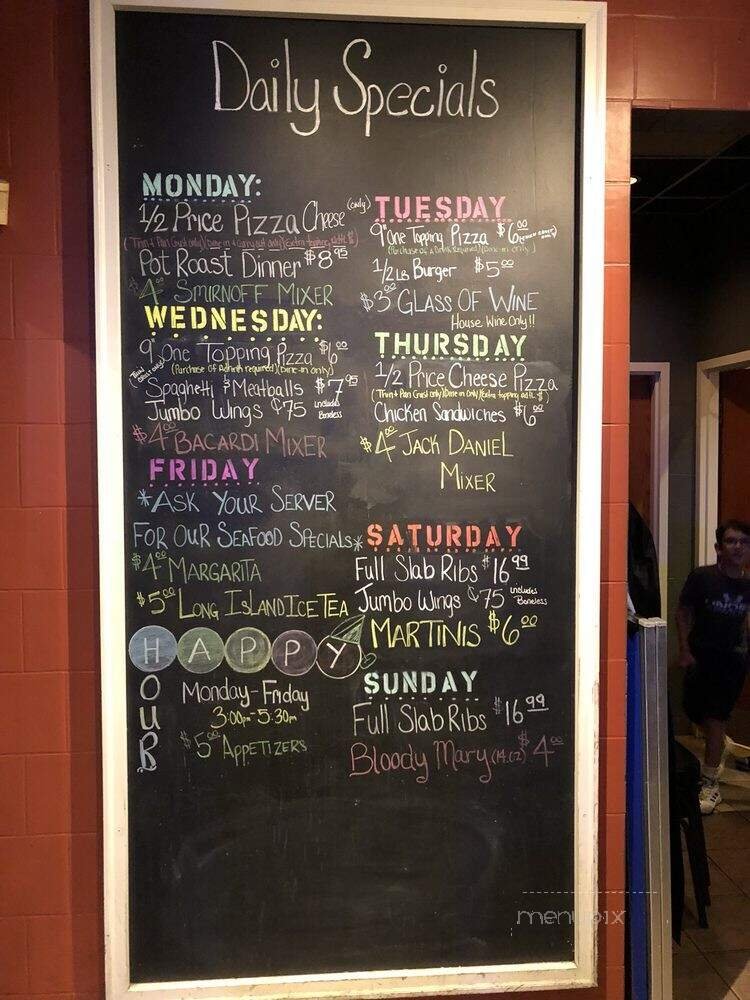 Daily Specials
MONDAY:
1/2 Price Pizza Cheese (only)
(Thin & Pan Crust only)(Dine-in & Carry out only)(Extra topping addtl. $)
Pot Roast Dinner $8.95
$4.00 SMIRNOFF MIXER
TUESDAY
9" One Topping Pizza $6.00
(Purchase of a Drink Required)(Dine-in only)
1/2 Lb Burger $5.00
$3.00 GLASS OF WINE
House Wine Only!!
WEDNESDAY:
9" One Topping Pizza $6.00
(Thin crust only) (Purchase of A drink required)(Dine-in only)
Spaghetti & Meatballs $7.95
Jumbo Wings ¢75 includes Boneless
$4.00 BACARDI MIXER
THURSDAY
1/2 Price Cheese Pizza
(Thin & Pan Crust only)(Dine-in Only)(Extra topping addtl. $)
Chicken Sandwiches $6.00
$4.00 JACK DANIEL
MIXER
FRIDAY
*ASK YOUR SERVER
FOR OUR SEAFOOD SPECIALS*
$4.00 MARGARITA
$5.00 LONG ISLAND ICE TEA
SATURDAY
Full Slab Ribs $16.99
Jumbo Wings ¢75 includes Boneless
MARTINIS $6.00
HAPPY
HOUR
Monday-Friday
3:00pm-5:30pm
$5.00 APPETIZERS
SUNDAY
Full Slab Ribs $16.99
Bloody Mary (14oz) $4.00
menupix